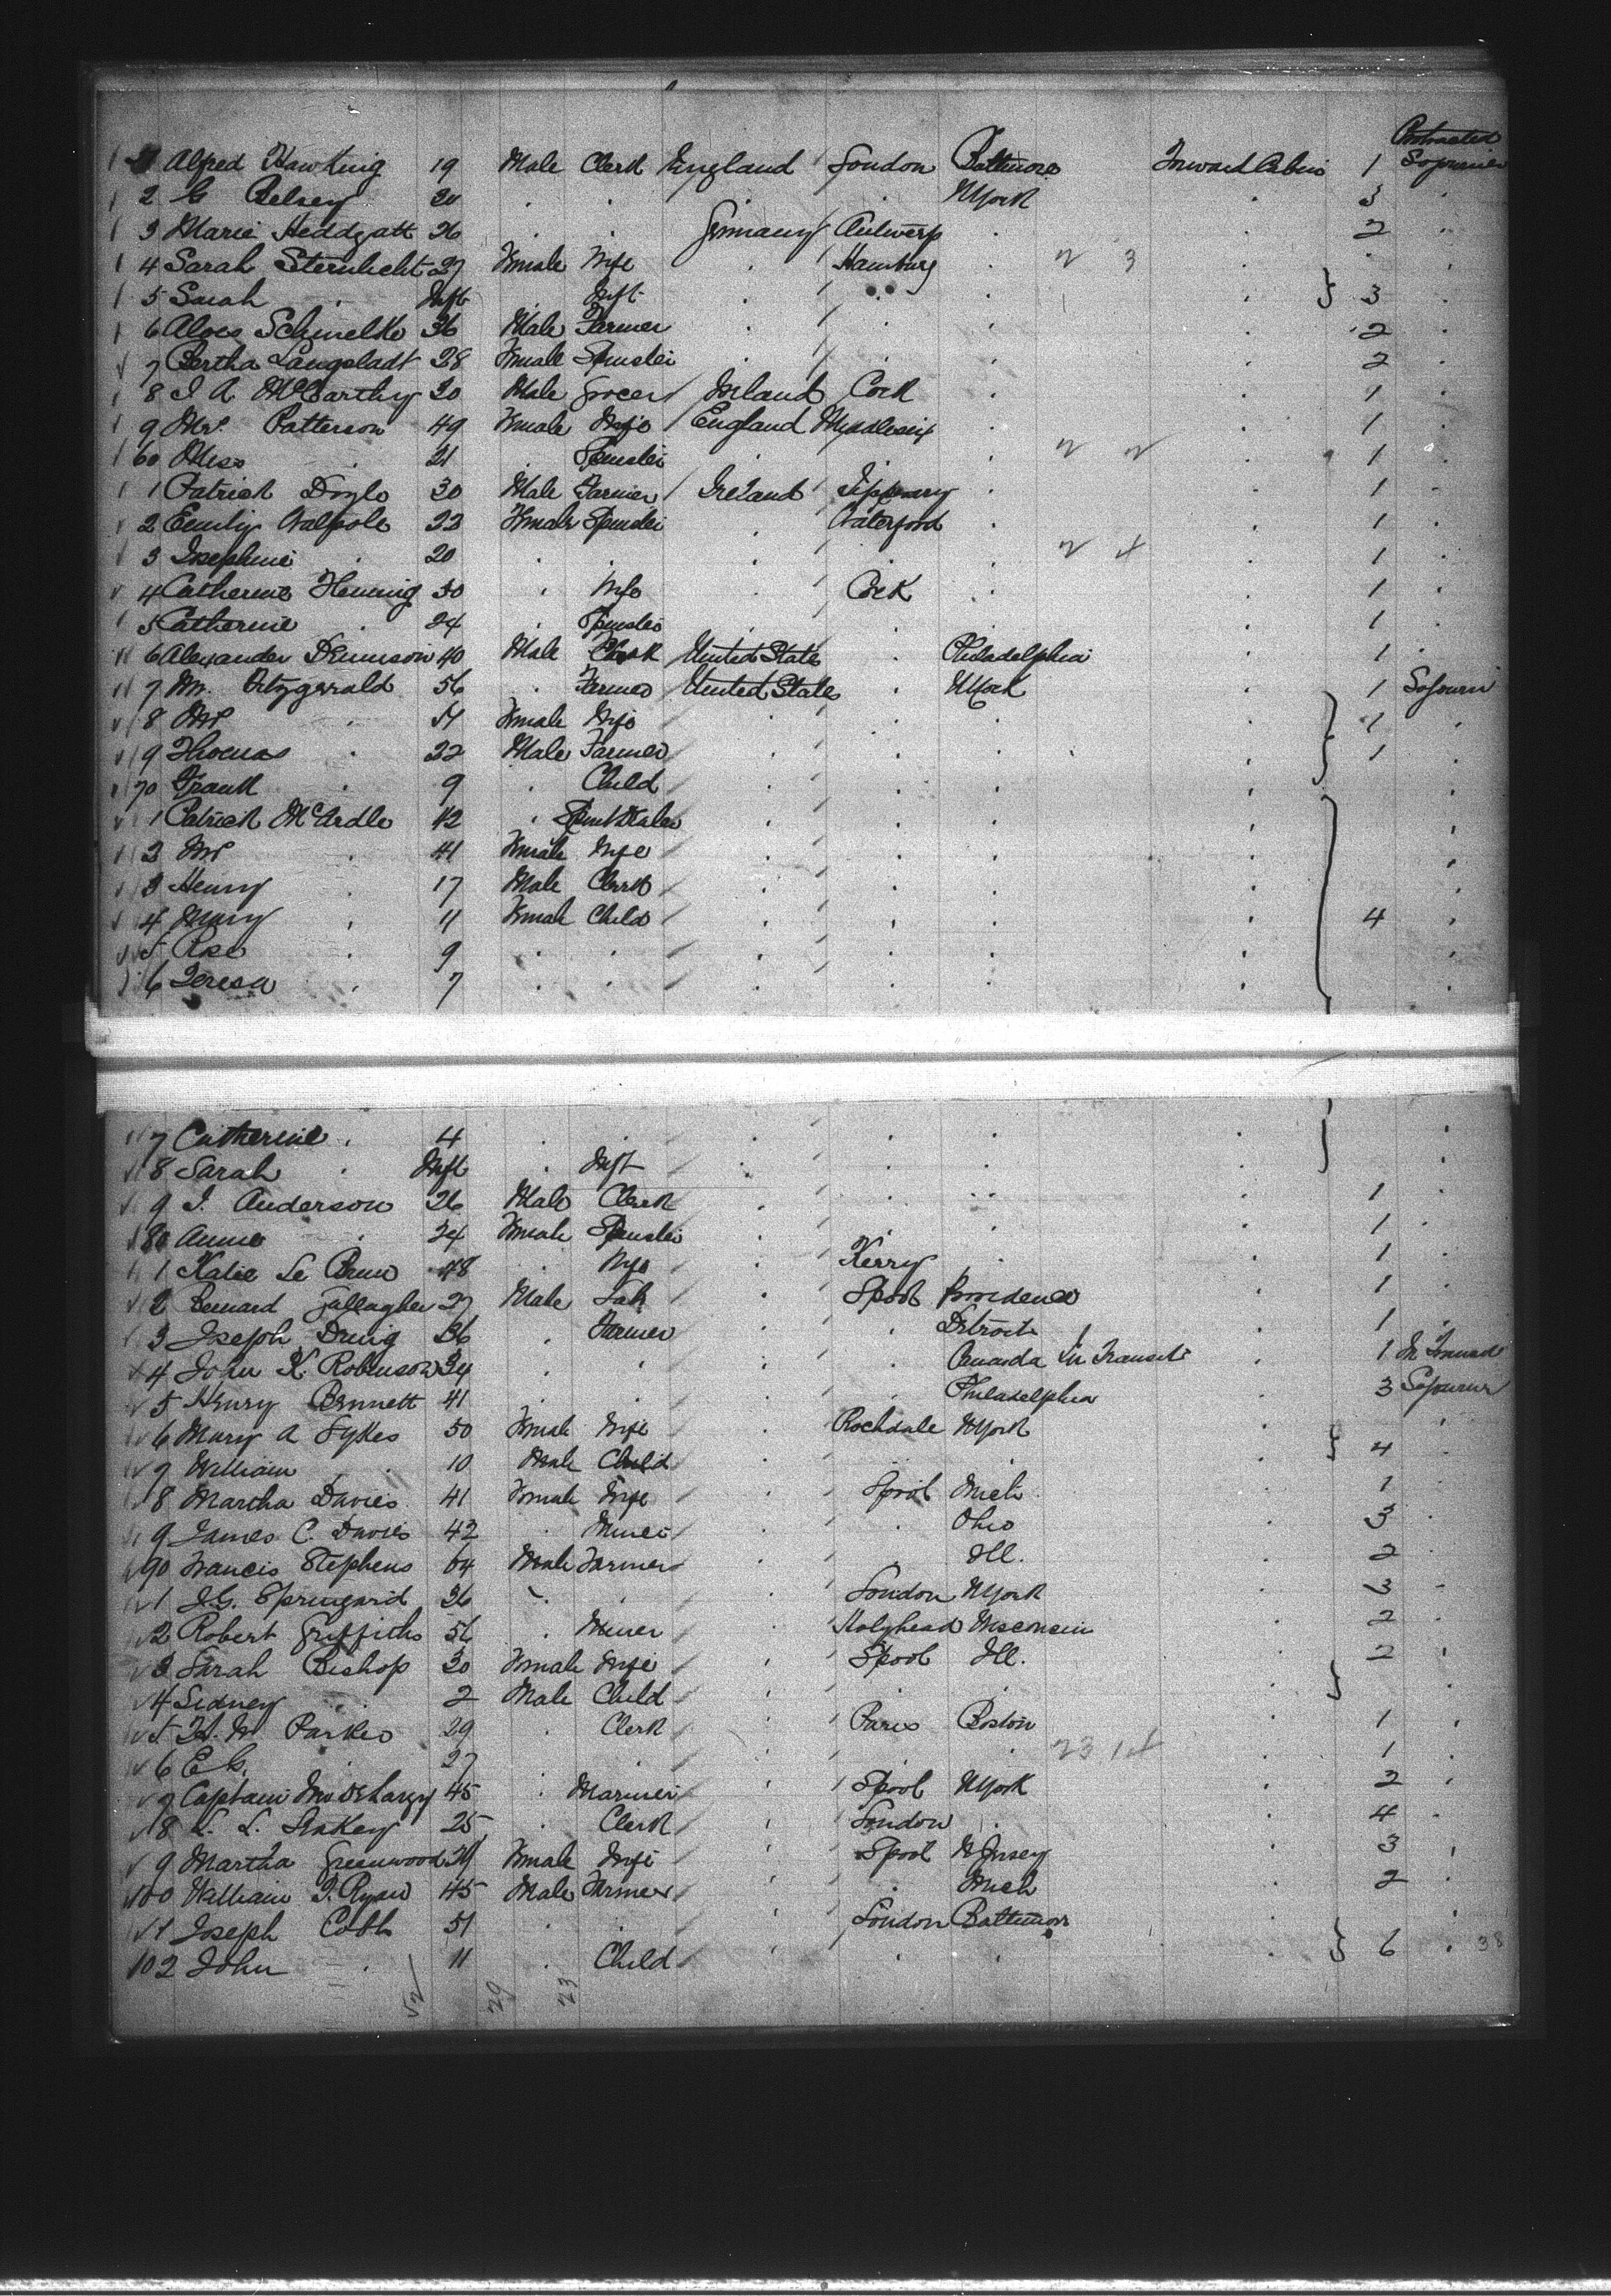 Protracted
51 Alfred Hawking 19 Male Clerk England London Baltimore Forward Cabin 1 Sojourn
2 G Belsey 20 . . . . NYork . 3 .
3 Marie Heddgatt 26 . . Germany Antwerp . . 2 .
4 Sarah Sternlicht 27 Female Wife . Hamburg . 2 3 . .
5 Sarah . Inft . Inft . . . . } 3 .
6 Alves Schmelke 36 Male Farmer . . . . 2 .
7 Bertha Langstadt 28 Female Spinster . . . . 2
8 J A McCarthy 20 Male Grocer Ireland Cork . . 1 .
9 Mrs. Patterson 49 Female Wife England Middlesex . . 1 .
60 Miss . 21 . Spinster . 2 2 . 1 .
1 Patrick Doyle 30 Male Farmer Ireland Tipperary . . 1 .
2 Emily Walpole 22 Female Spinster . Waterford . . 1 .
3 Josephine . 20 . . . . . 2 4 . 1 .
4 Catherine Fleming 30 . Wife . Cork . . 1 .
5 Catherine . 24 . Spinster . . . . 1 .
6 Alexander Dennison 40 Male Clerk United State . Philadelphia . 1 .
7 Mr. Fitzgerald 56 . Farmer United States . NYork . 1 Sojourn
8 Mrs . 54 Female Wife . . . . 1 .
9 Thomas . 22 Male Farmer . . . . } 1 .
70 Frank . 9 . Child . . . . .
1 Patrick McArdle 42 . Spirit Dealer . . . . .
2 Mrs . 41 Female Wife . . . . .
3 Henry . 17 Male Clerk . . . . .
4 Mary . 11 Female Child . . . . 4 .
5 Rose . 9 . . . . . . .
6 Teresa . 7 . . . . . . .
7 Catherine . 4 . . . . . . } .
8 Sarah . Inft . Inft . . . . .
9 J. Anderson 26 Male Clerk . . . . 1 .
80 Annie . 24 Female Spinster . . . . 1 .
1 Katie Le Brun 48 . Wife . Kerry . . 1 .
2 Bernard Gallagher 27 Male Lab . Lpool Providence . 1 .
3 Joseph Dring 36 . Farmer . . Detroit . 1 .
4 John K. Robinson 34 . . . . Canada In Transit . 1 In Transit
5 Henry Bennett 41 . . . . Philadelphia 3 Sojourn
6 Mary A Sykes 50 Female Wife . Rochdale NYork . .
7 William . 10 Male Child . . . } 4 .
8 Martha Davies 41 Female Wife . Lpool Mich . 1 .
9 James C. Davies 42 . Miner . . Ohio . 3 .
90 Francis Stephens 64 Male Farmer . . Ill. . 2 .
1 J.G. Springard 36 . . . London NYork . 3 .
2 Robert Griffiths 56 . Miner . Holyhead Wisconsin . 2 .
3 Sarah Bishop 30 Female Wife . Lpool Ill. . 2 .
4 Sidney . 2 Male Child . . . . } .
5 H. W. Parker 29 . Clerk . Paris Boston . 1 .
6 E G. . 27 . . . . . 23 14 . 1 .
7 Captain 45 . Mariner . Lpool NYork . 2 .
8 L. L. 25 . Clerk . London . . 4 .
9 Martha Greenwood 24 Female Wife . Lpool N Jersey . 3 .
100 William J. Ryan 45 Male Farmer . . Mich . 2 .
1 Joseph Cobb 51 . . . London Baltimore .
102 John . 11 . Child . . . . } 6 . 38
52 29 23